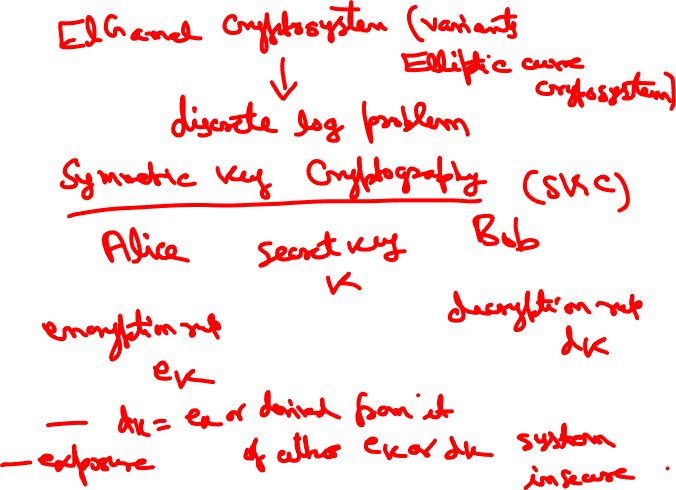 ElGamal Cryptosystem (variants
Elliptic curve
cryposystem)
↓
discrete log problem
Symmetric key Cryptography (SKC)
Alice secret key Bob
K
encryption rule decryption rule
e_K d_K
— d_K = e_K or derived from it
— exposure of either e_K or d_K system
insecure.